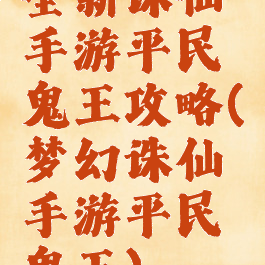 全新诛仙
手游平民
鬼王攻略(
梦幻诛仙
手游平民
鬼王)